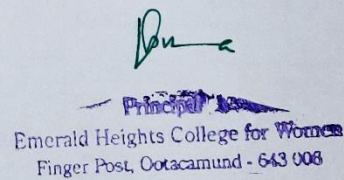 Principal
Emerald Heights College for Women
Finger Post, Ootacamund - 643 006